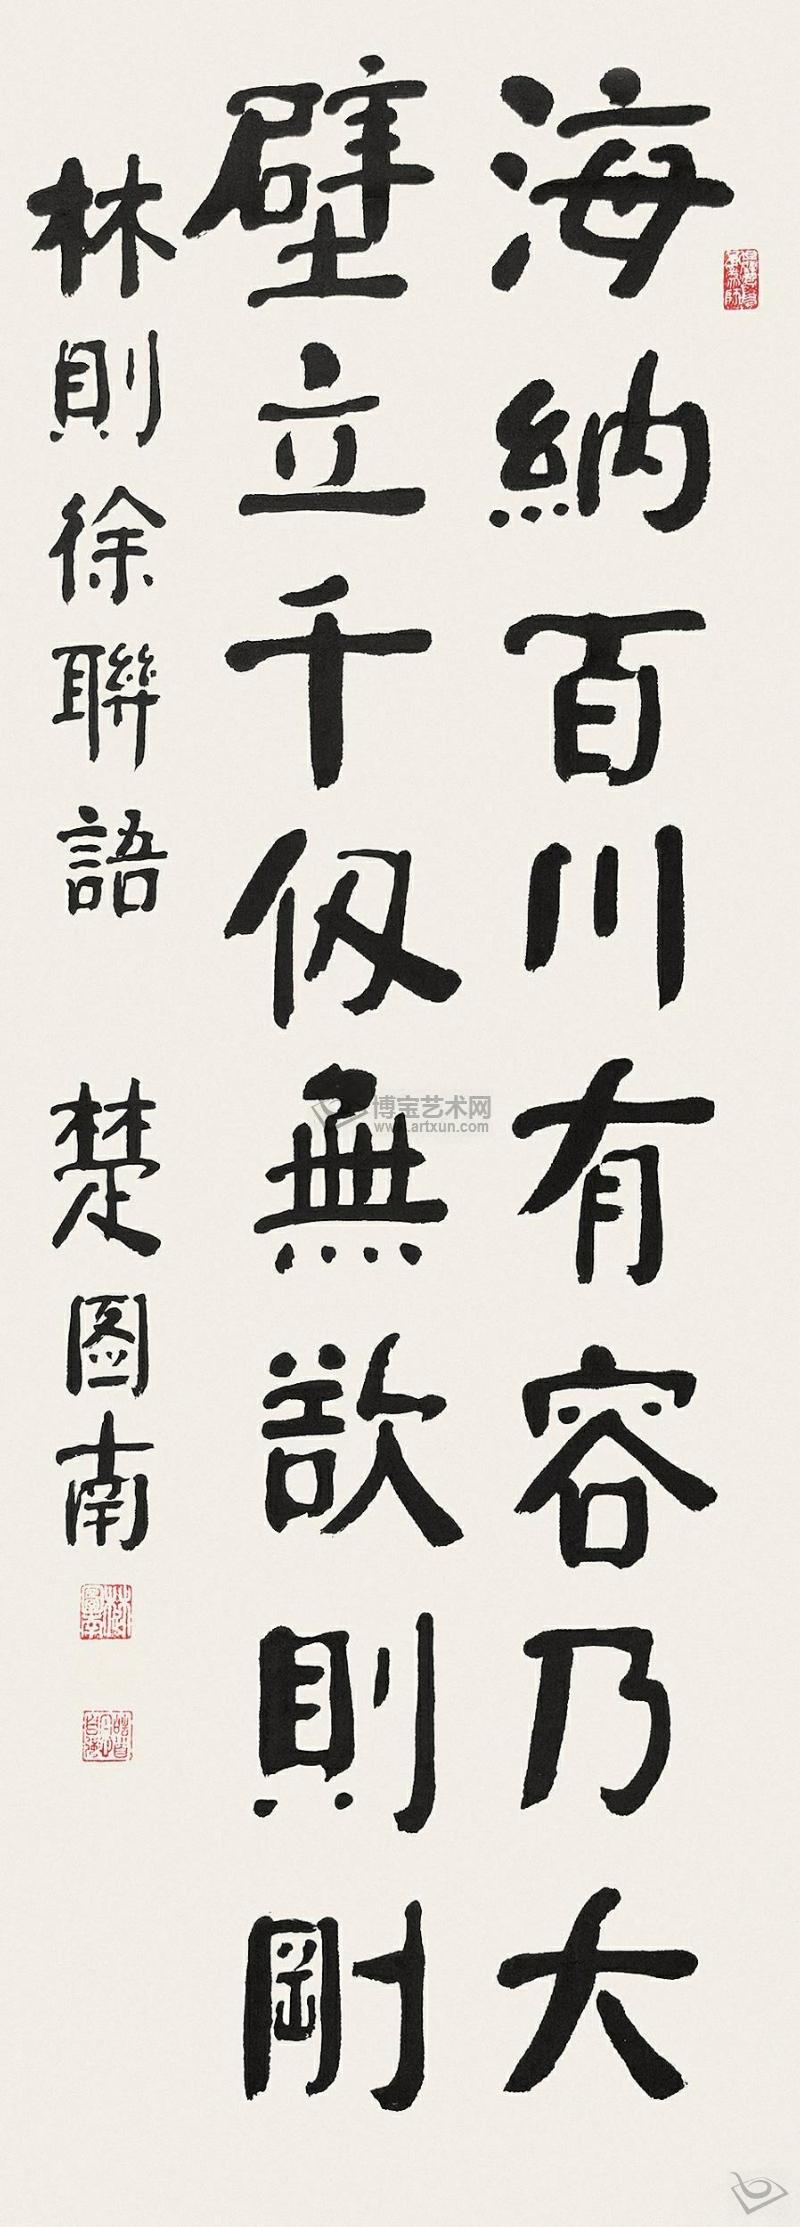 海納百川有容乃大
壁立千仭無欲則剛
林則徐聯語 楚图南
博宝艺术网
www.artxun.com